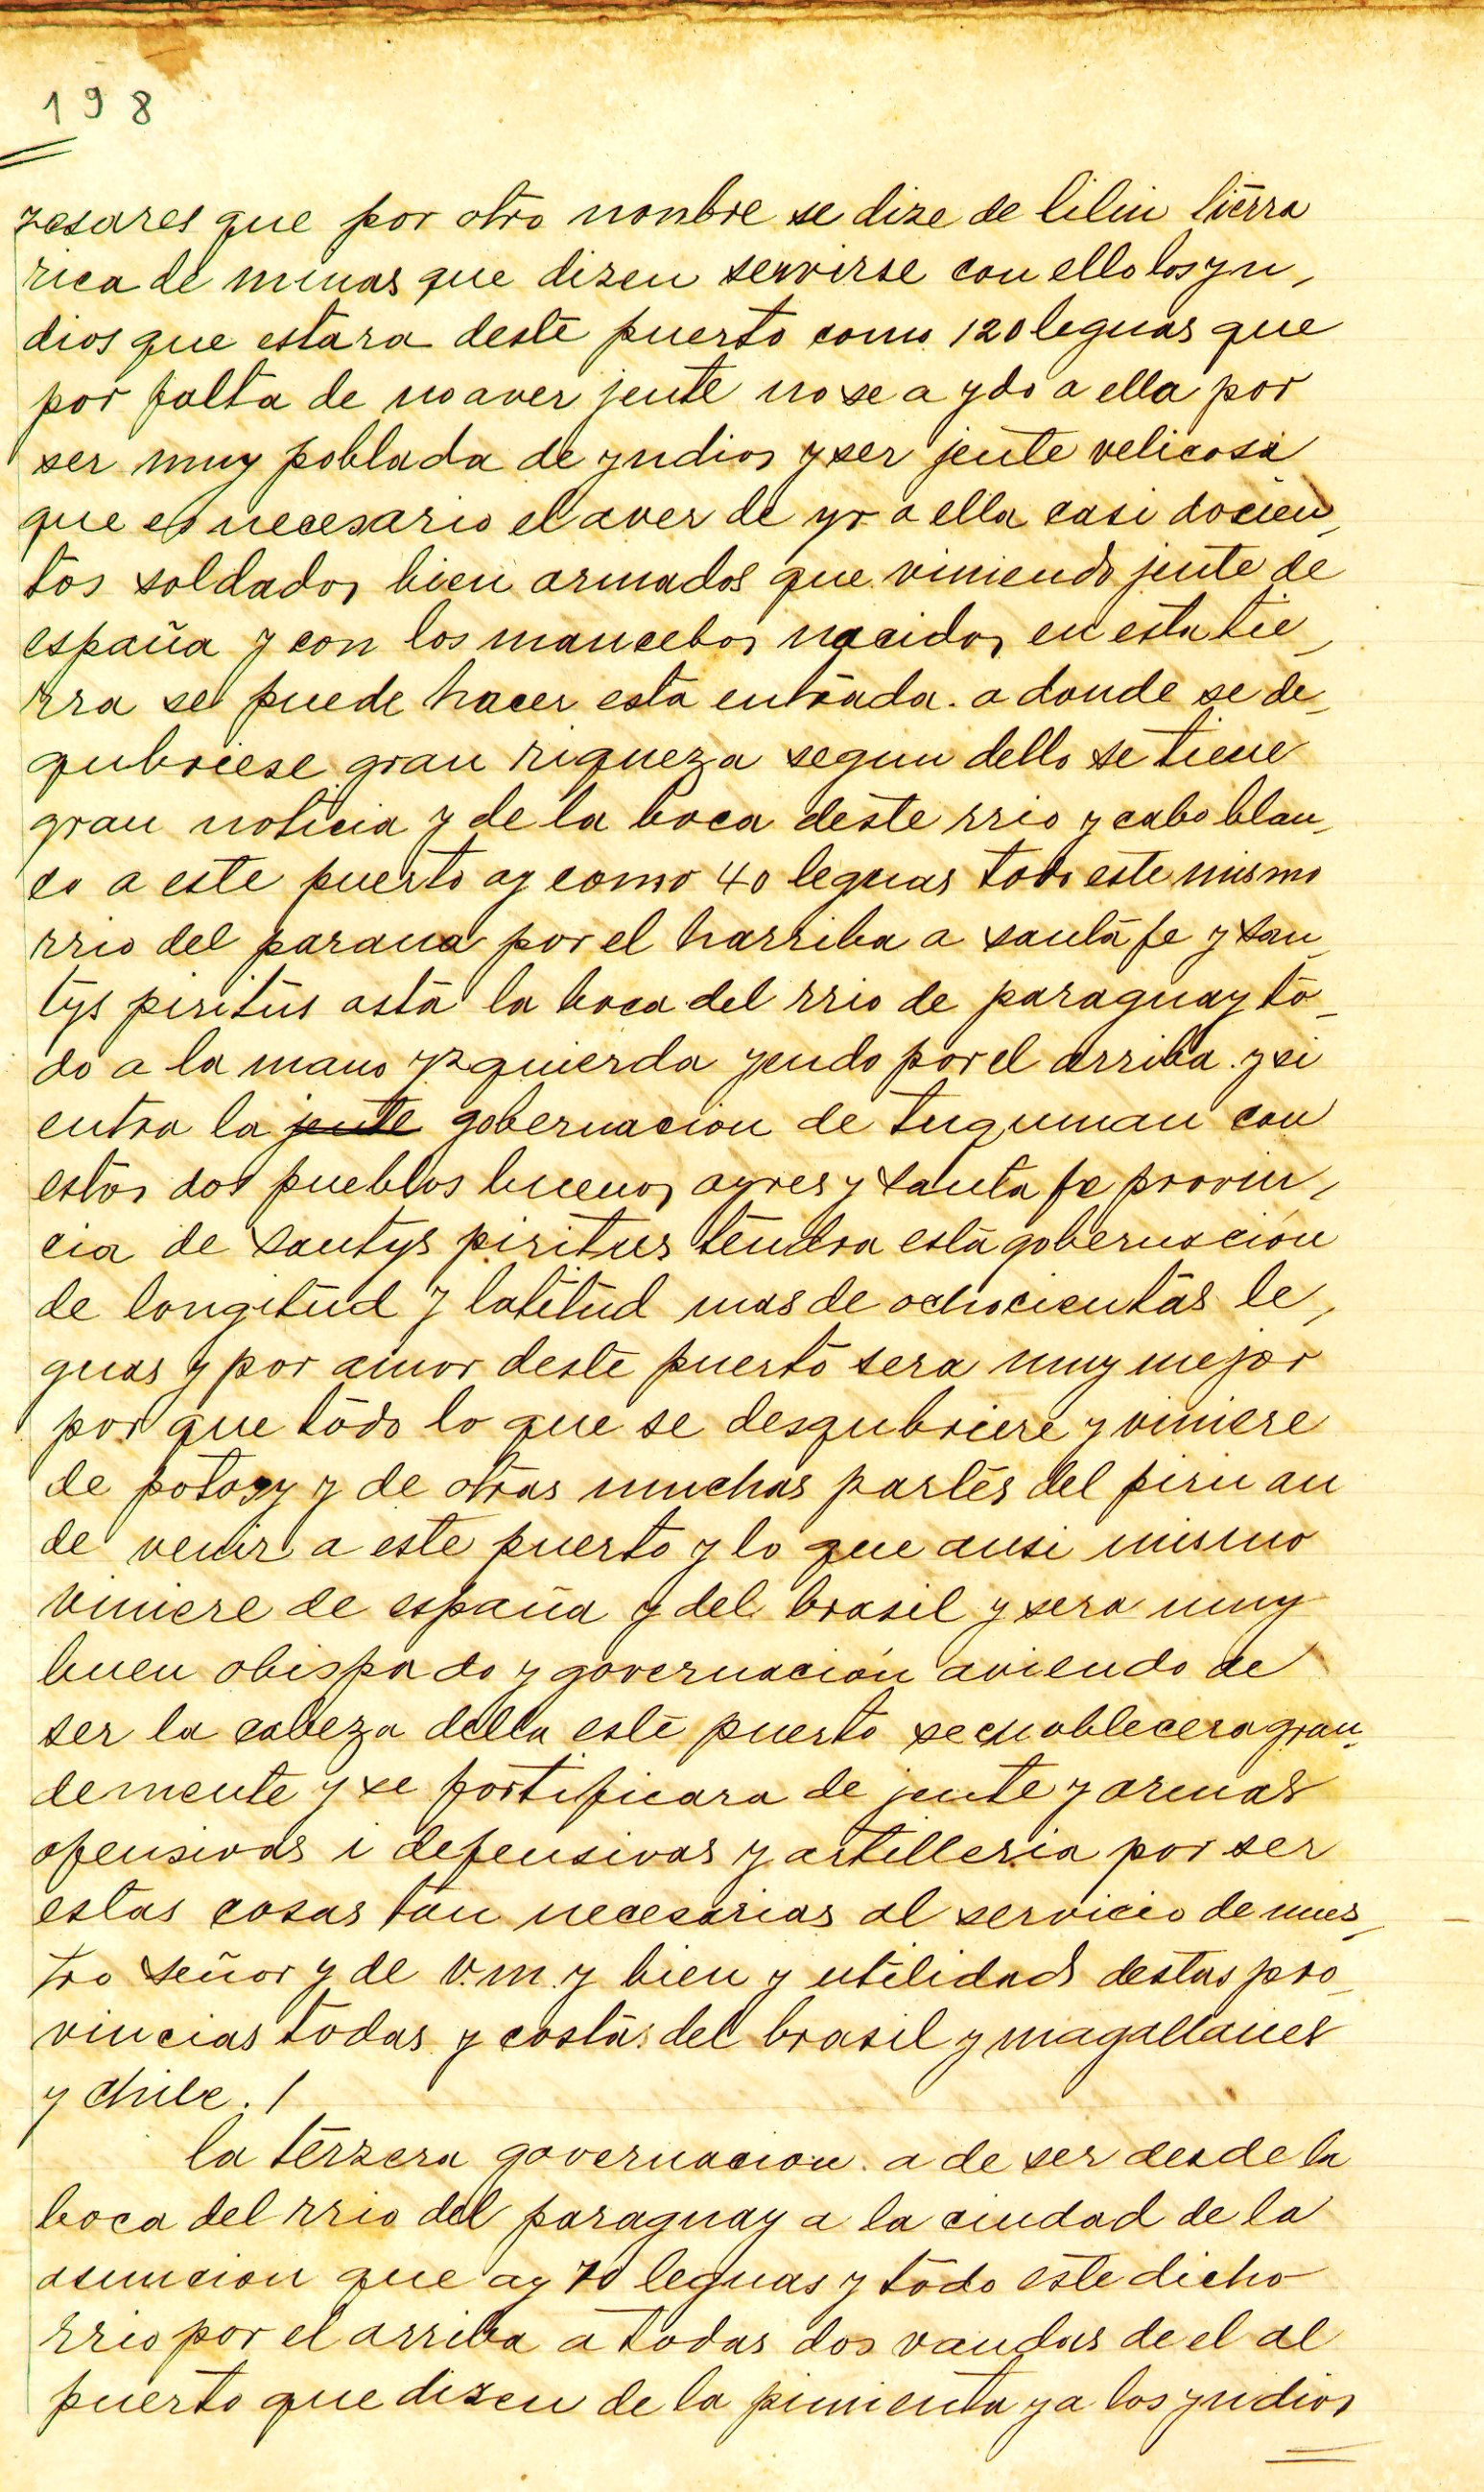 198
zesares que por otro nonbre se dize de lilin tierra
rica de minas que dizen servirse con ello los yn,
dios que estara deste puerto como 120 leguas que
por falta de no aver jente no se a ydo a ella por
ser muy poblada de yndios y ser jente velicosa
que es necesario el aver de yr a ella casi docien,
tos soldados bien armados que viniendo jente de
españa y con los mancebos nacidos en esta tie,
rra se puede hacer esta entrada. a donde se de_
qubriese gran riqueza segun dello se tiene
gran noticia y de la boca deste rrio y cabo blan,
co a este puerto ay como 40 leguas todo este mismo
rrio del parana por el harriba a santa fe y san_
tys piritus asta la boca del rrio de paraguay to_
do a la mano yzquierda yendo por el arriba. y si
entra la jente gobernacion de tuquman con
estos dos pueblos buenos ayres y santa fe provin,
cia de santys piritus tendra esta gobernación
de longitud y latitud mas de ochocientas le,
guas y por amor deste puerto sera muy mejor
por que todo lo que se desqubriere y viniere
de potosy y de otras muchas partes del piru an
de venir a este puerto y lo que ansi mismo
viniere de españa y del brasil y sera muy
buen obispado y governación aviendo de
ser la cabeza della este puerto se enoblecera gran_
demente y se fortificara de jente y armas
ofensivas i defensivas y artilleria por ser
estas cosas tan necesarias al servicio de nues_
tro señor y de v.m. y bien y utilidad destas pro_
vincias todas y costas del brasil y magallanes
y chile. /
la terzera governacion. a de ser desde la
boca del rrio del paraguay a la ciudad de la
asuncion que ay 70 leguas y todo este dicho
rrio por el arriba a todas dos vandas de el al
puerto que dizen de la pimienta y a los yndios